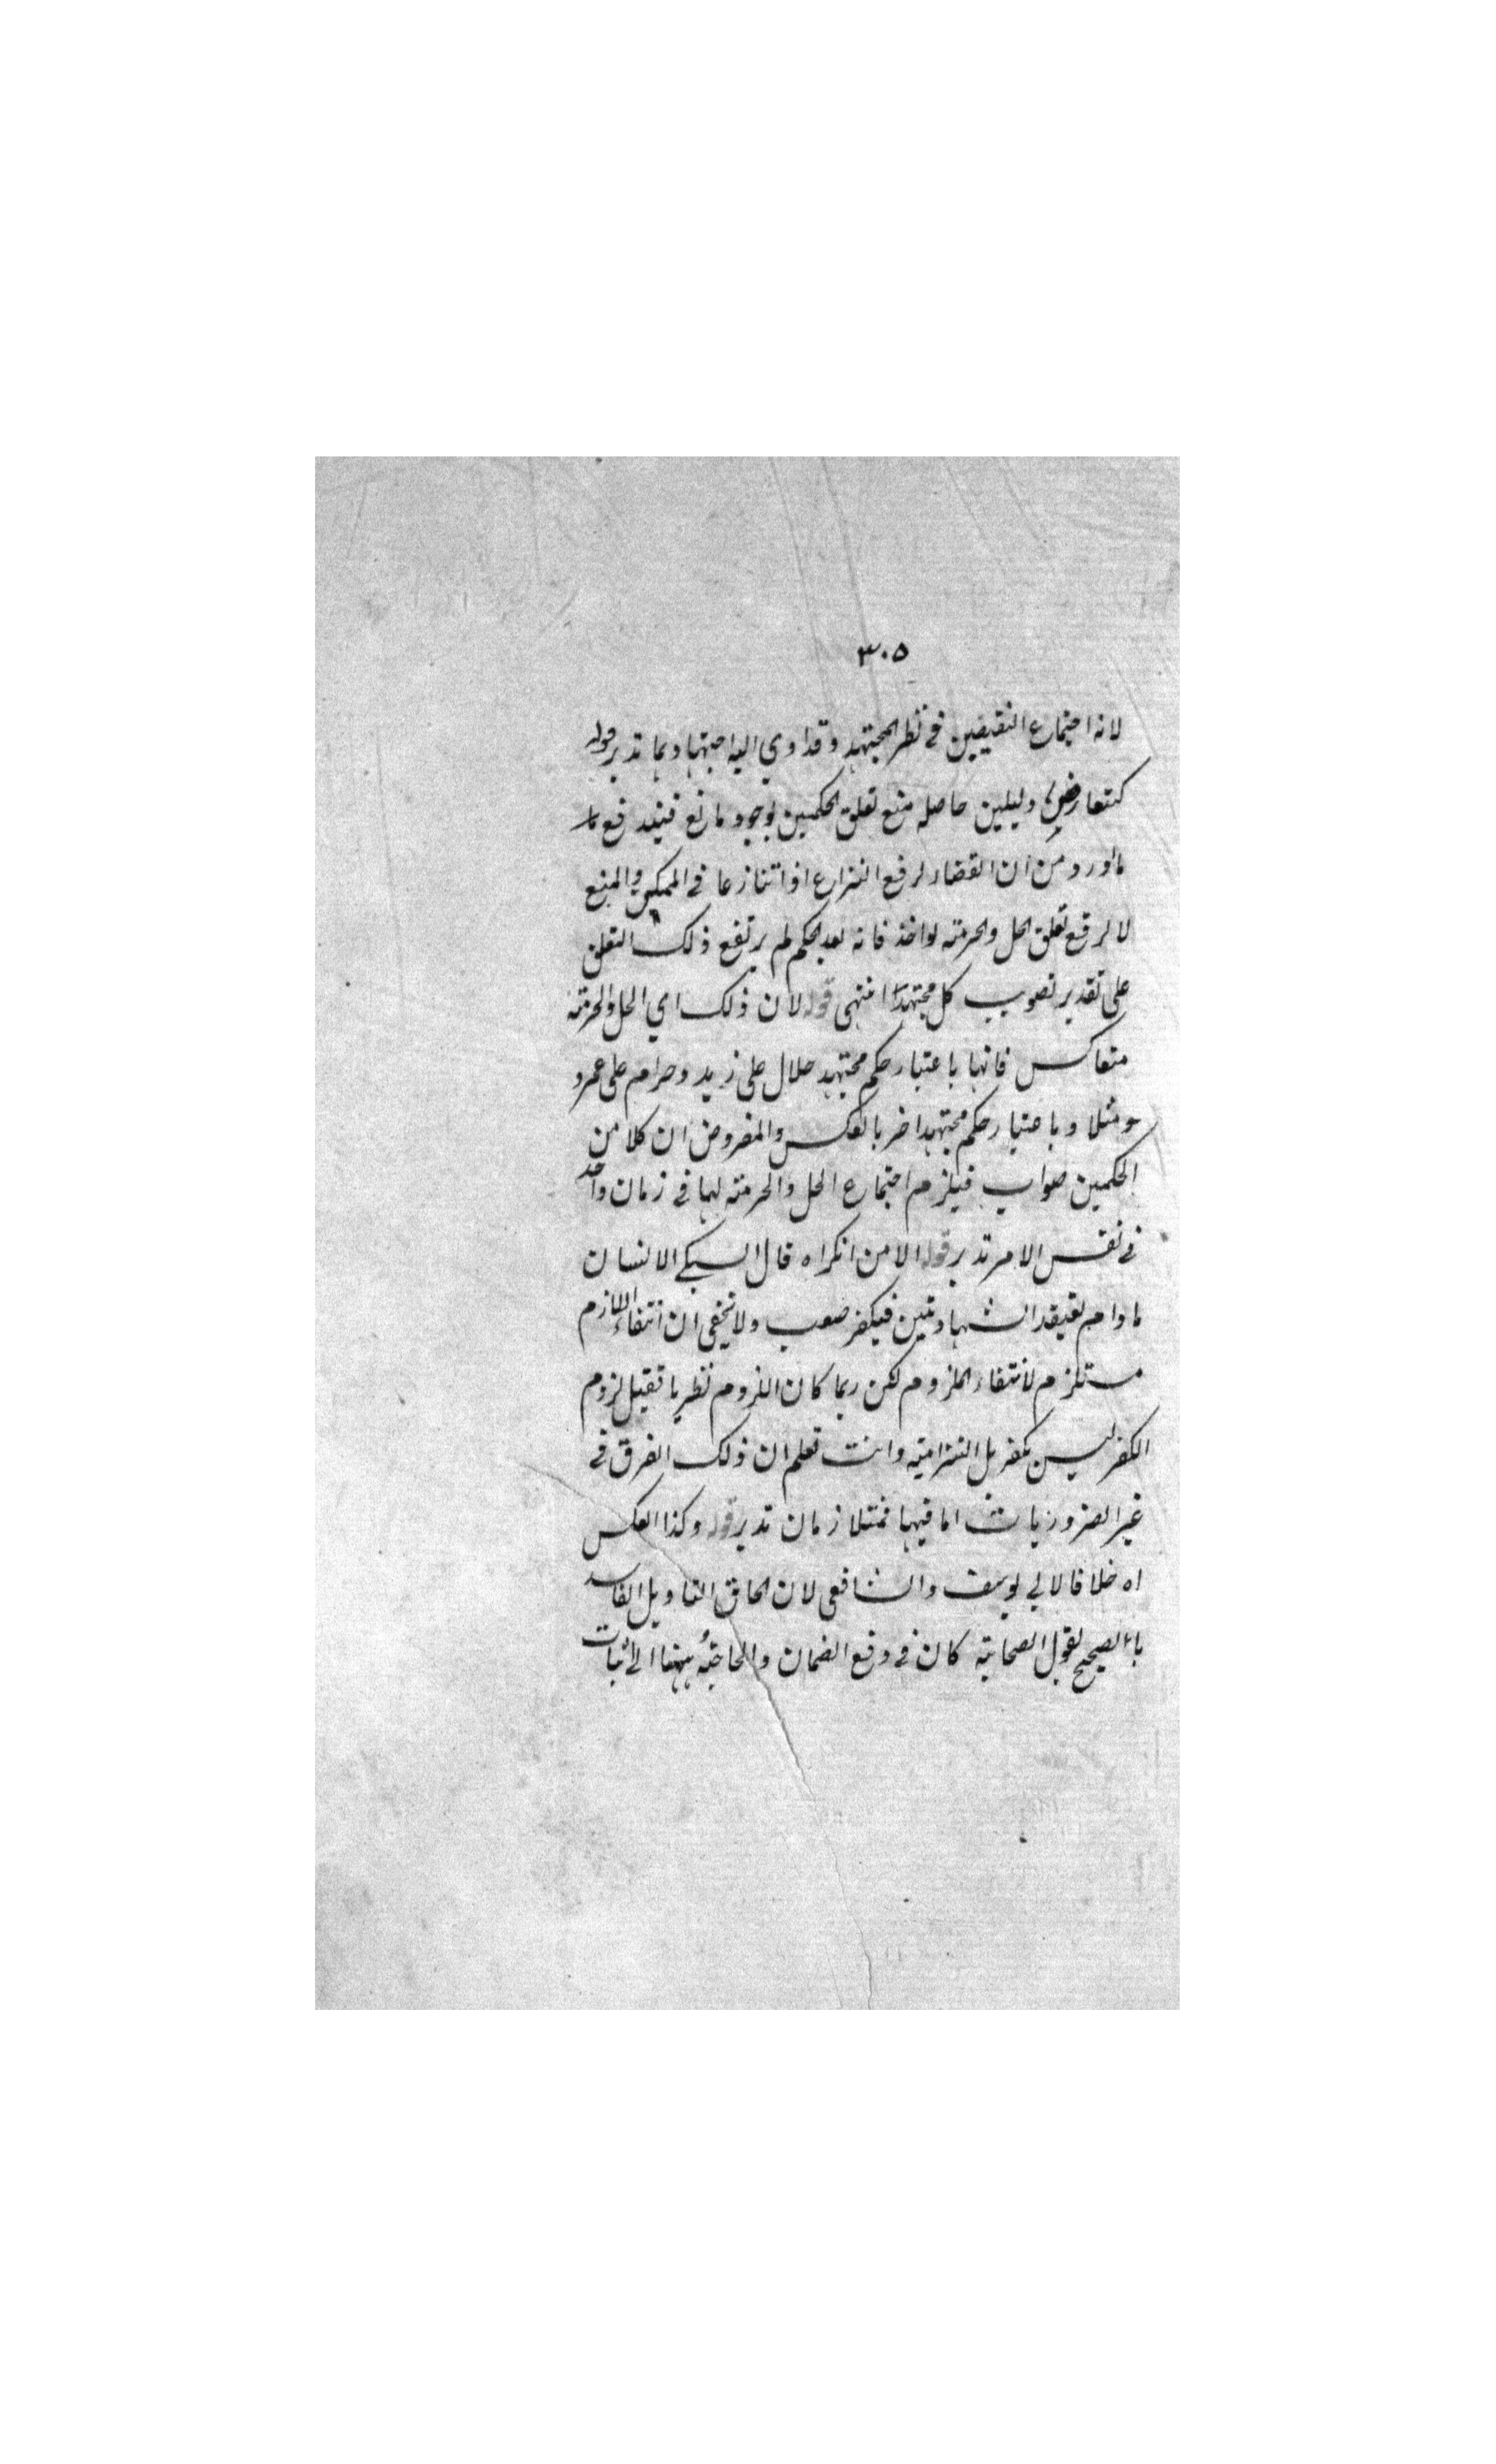 ٣٠٥
لانه اجتماع النقيضين في نظر المجتهد وقد اوي اليه اجتهادهما تدبر قوله
كتعارض دليلين حاصله منع تعلق الحكمين لوجود مانع فيندفع
ما اورد من ان القضاء لرفع النزاع اذا تنازعا في التمكين والمنع
لا لرفع تعلق الحل والحرمته لواحد فانه بعد الحكم لم يرتفع ذلك التعلق
على تقدير تصويب كل مجتهد انتهى قوله لان ذلك اي الحل والحرمته
متعاكس فانها باعتبار حكم مجتهد حلال على زيد وحرام على عمرو
مثلا وباعتبار حكم مجتهد اخر بالعكس والمفروض ان كلا من
الحكمين صواب فيلزم اجتماع الحل والحرمته لهما في زمان واحد
في نفس الامر تدبر قوله الا من انكر اه قال السبكي الانسان
مادام يعتقد الشهادتين فيكفر صعب ولا يخفى ان انتفاء اللازم
مستلزم لانتفاء الملزوم لكن ربما كان اللزوم نظريا فقيل لزوم
الكفر ليس بكفر بل التزامية وانت تعلم ان ذلك الفرق في
غير الضروريات اما فيها فمتلازمان تدبر قوله وكذا العكس
اه خلافا لابي يوسف والشافعي لان الحاق التاويل الفاسد
بالصحيح لقول الصحابته كان في دفع الضمان والحاجة ههنا الى اثبات